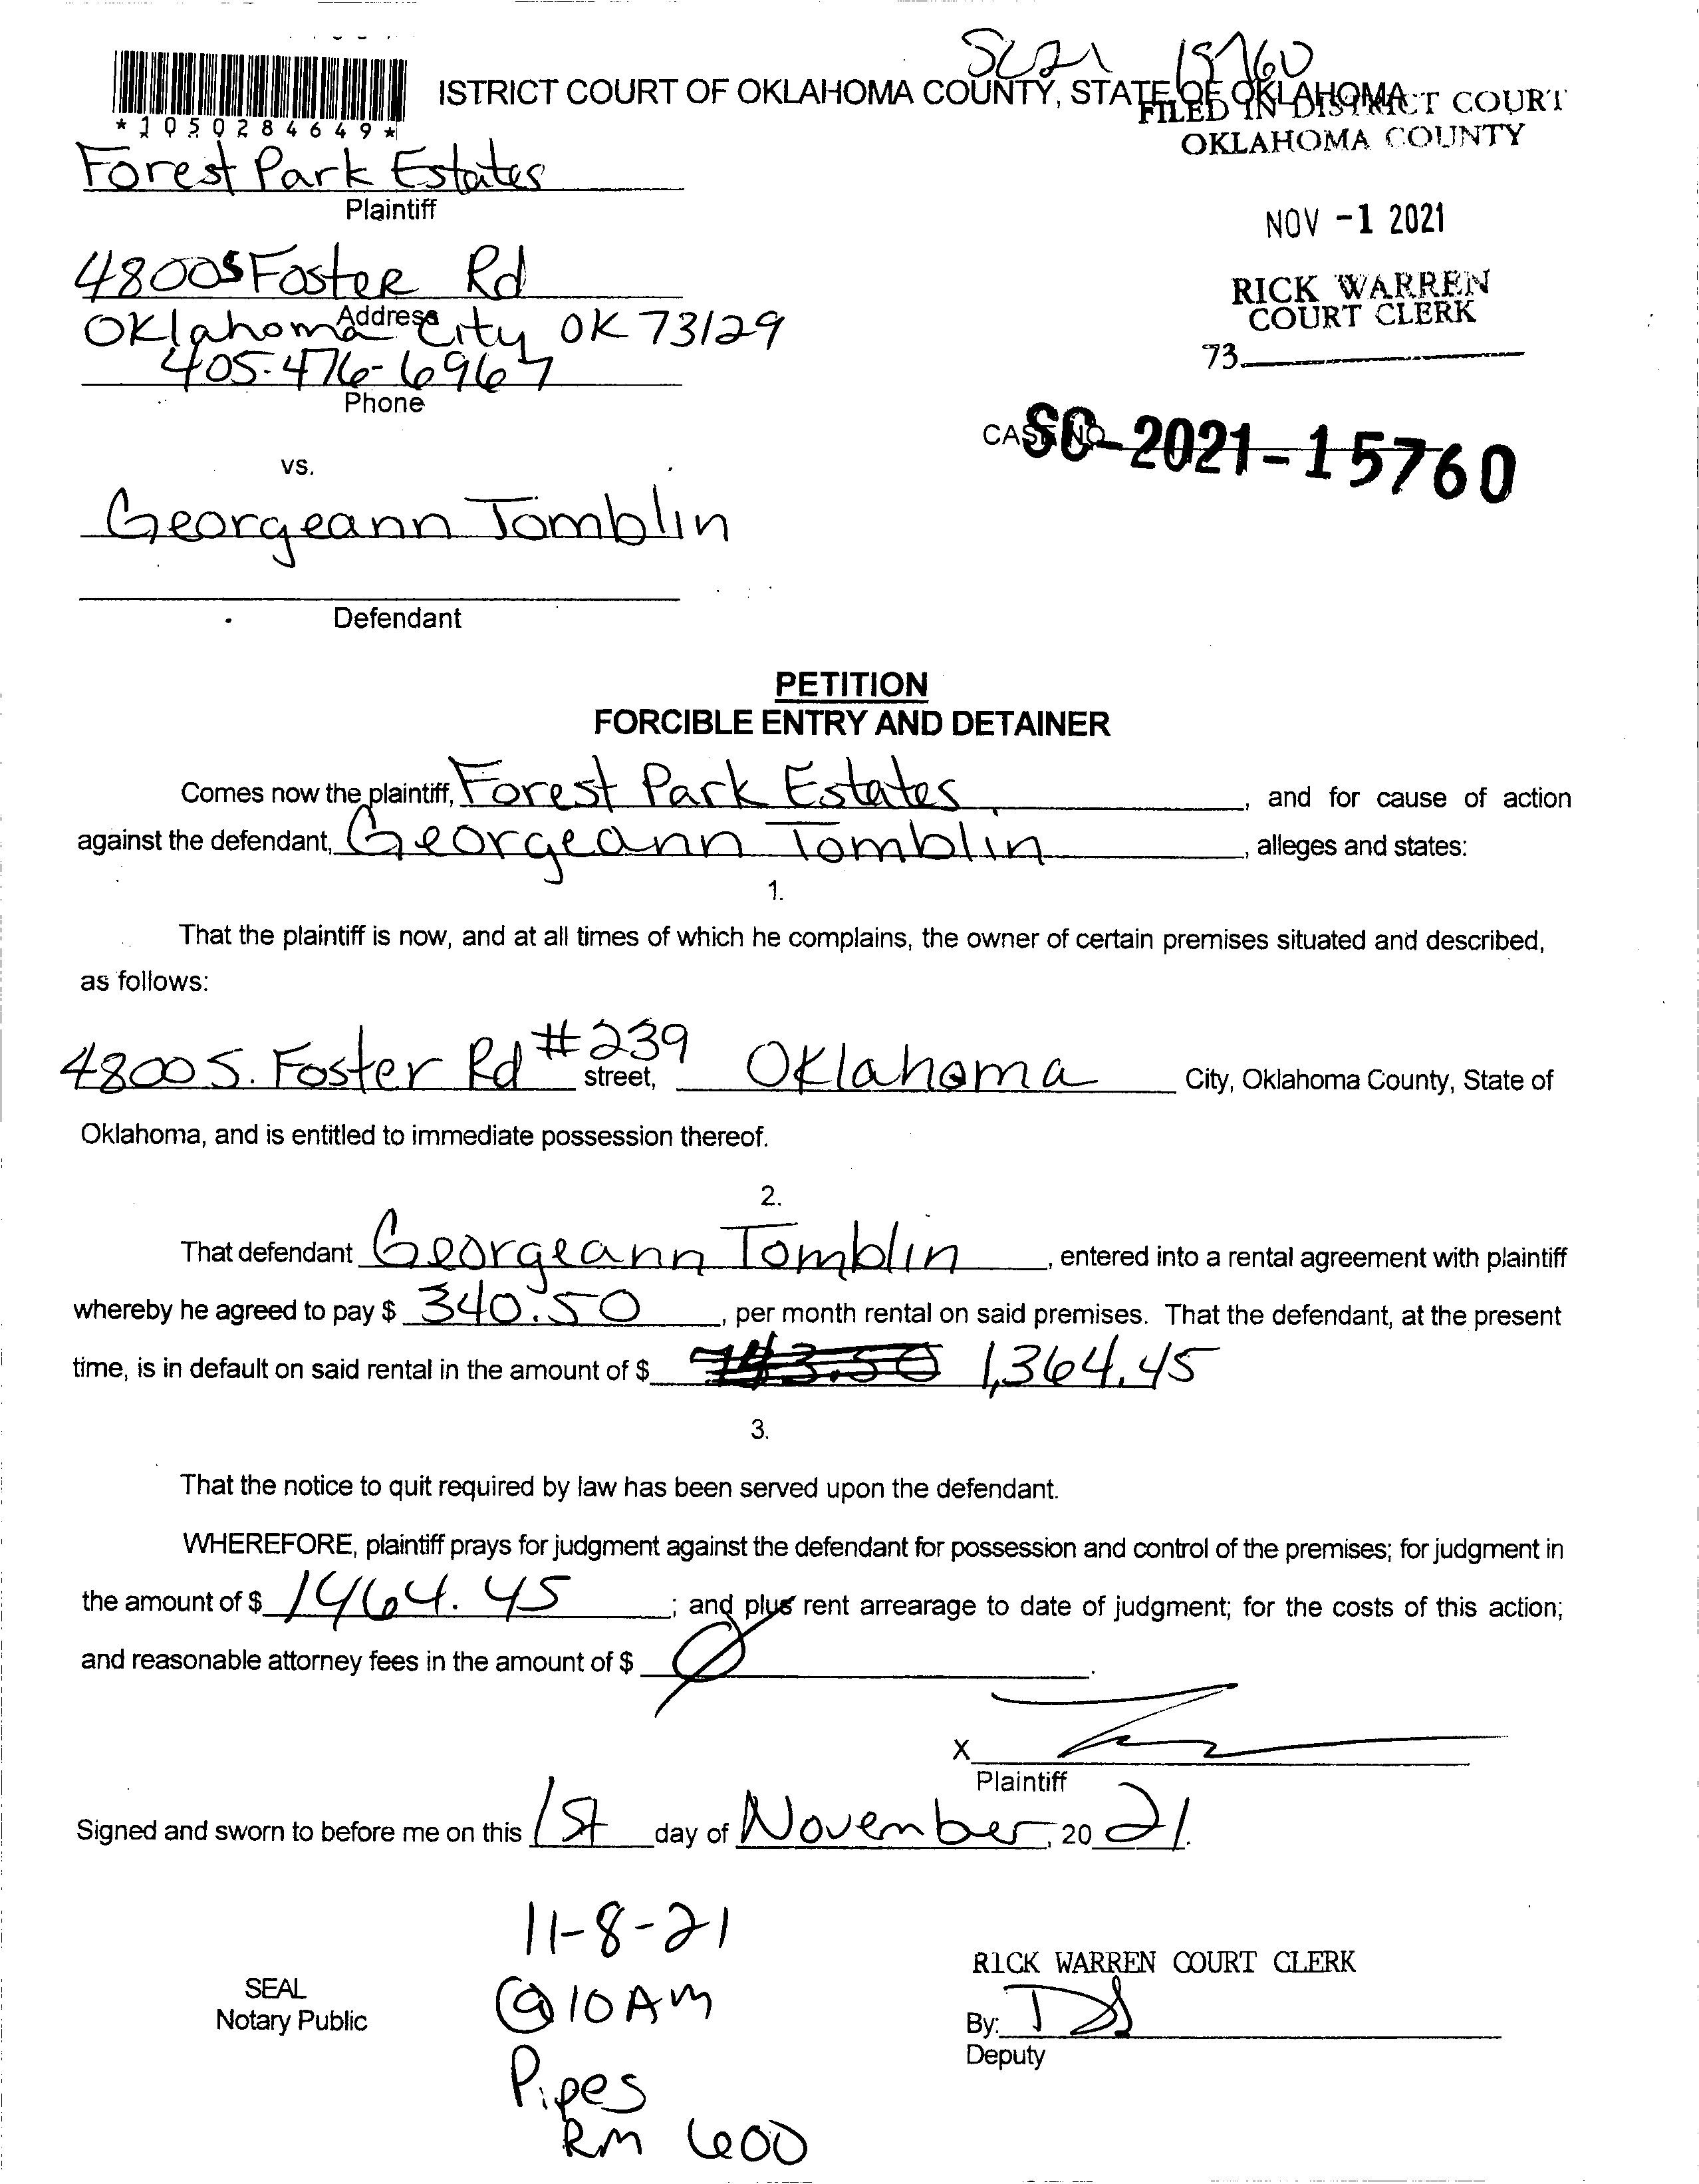 SC21 15760
ISTRICT COURT OF OKLAHOMA COUNTY, STATE OF OKLAHOMA
FILED IN DISTRICT COURT
OKLAHOMA COUNTY
*1050284649*
Forest Park Estates
Plaintiff
NOV -1 2021
4800 S Foster Rd
Address
RICK WARREN
COURT CLERK
Oklahoma City OK 73129
73
405-476-6967
Phone
CASE NO. SC-2021-15760
vs.
Georgeann Tomblin
Defendant
PETITION
FORCIBLE ENTRY AND DETAINER
Comes now the plaintiff, Forest Park Estates, and for cause of action
against the defendant, Georgeann Tomblin, alleges and states:
1.
That the plaintiff is now, and at all times of which he complains, the owner of certain premises situated and described,
as follows:
4800 S. Foster Rd #239 street, Oklahoma City, Oklahoma County, State of
Oklahoma, and is entitled to immediate possession thereof.
2.
That defendant Georgeann Tomblin, entered into a rental agreement with plaintiff
whereby he agreed to pay $ 340.50, per month rental on said premises. That the defendant, at the present
time, is in default on said rental in the amount of $ 1,364.45
3.
That the notice to quit required by law has been served upon the defendant.
WHEREFORE, plaintiff prays for judgment against the defendant for possession and control of the premises; for judgment in
the amount of $ 1464.45; and plus rent arrearage to date of judgment; for the costs of this action;
and reasonable attorney fees in the amount of $ Ø.
X
Plaintiff
Signed and sworn to before me on this 1st day of November, 20 21.
11-8-21
@ 10 AM
Pipes
Rm 600
SEAL
Notary Public
RICK WARREN COURT CLERK
By: DS
Deputy